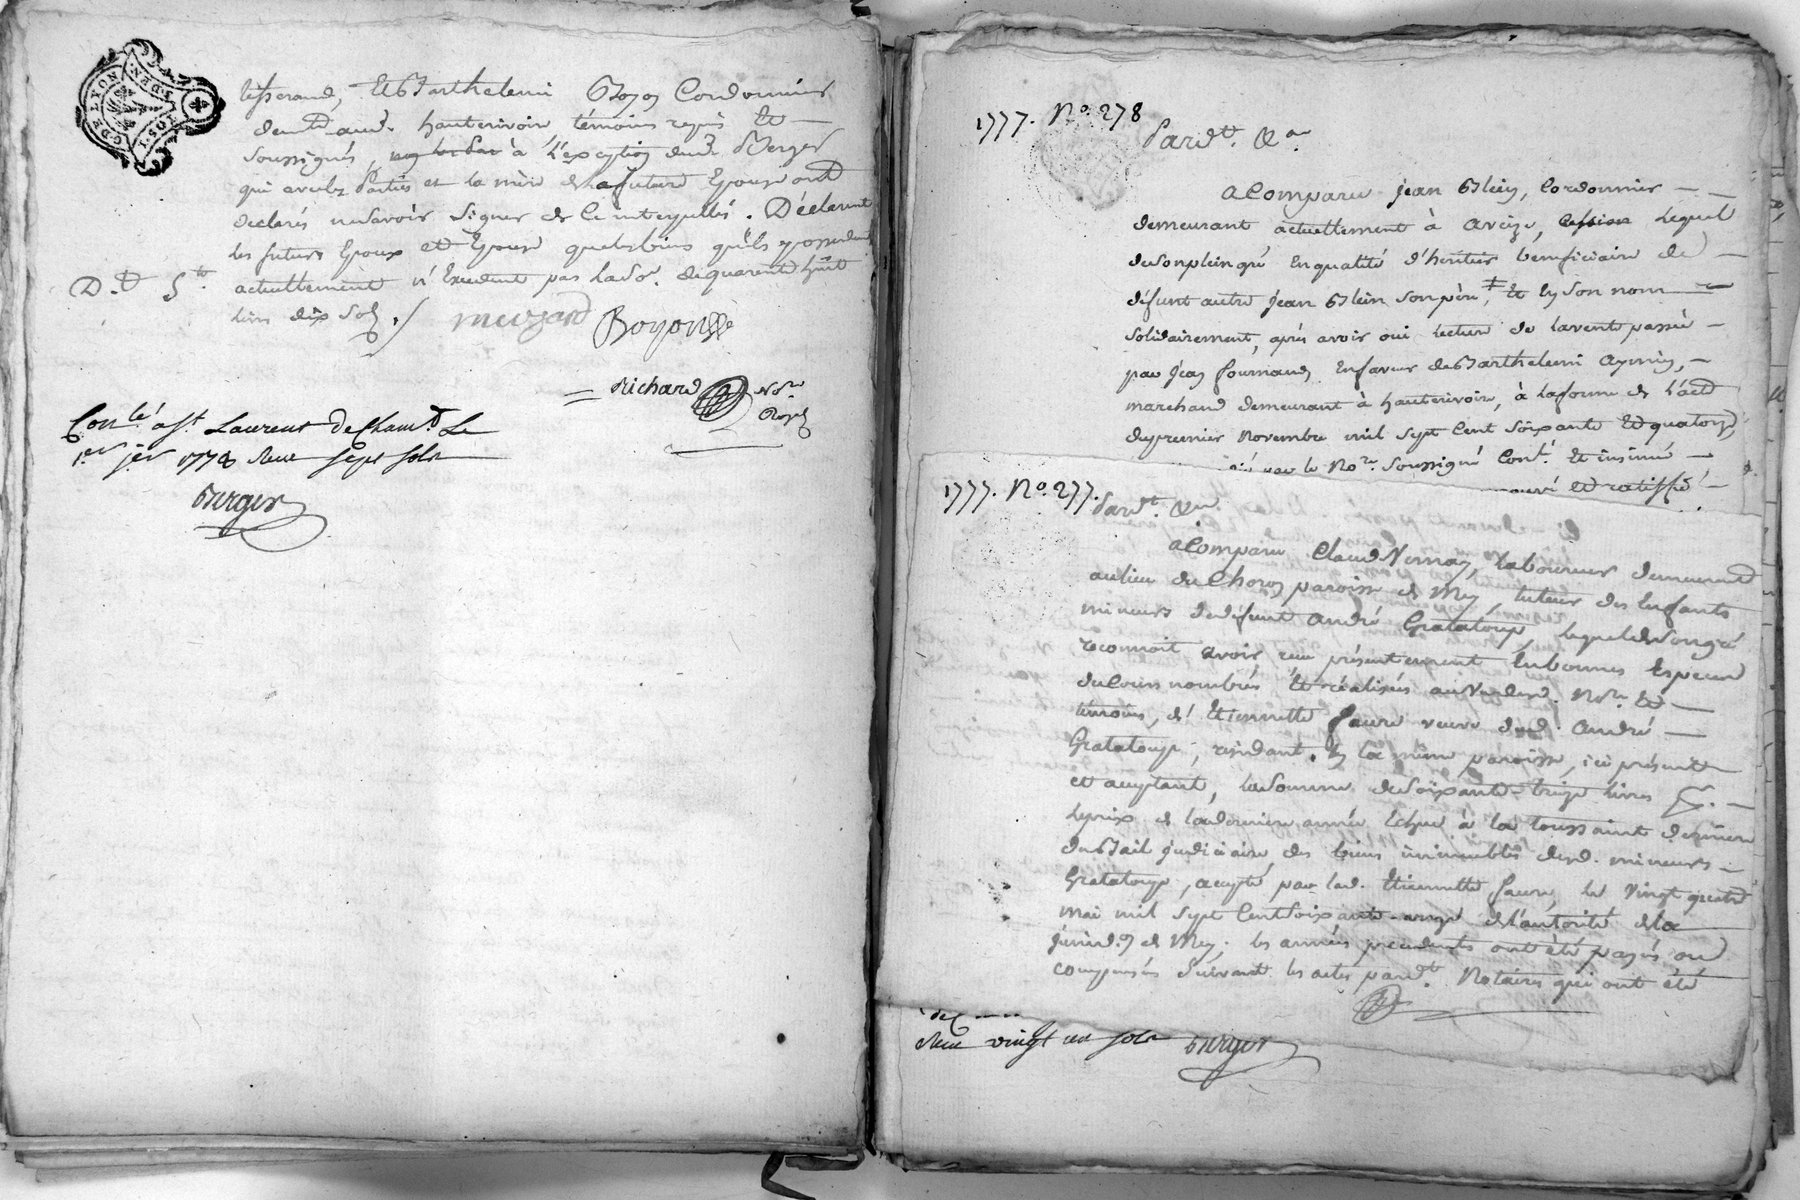 G DE LYON
tisserand, Et Barthelemi Boyon Cordonnier
dem.t aud. hauterivoir témoins requis Et
soussignés, à L'exception dud. Berger
qui avec les Parties et la mère de la future Epouse ont
declarés ne savoir signer de ce interpellés. Déclarent
les futurs Epoux et Epouse que les biens qu'ils possedent
D.t S.te actuellement n'Excedent pas la So.e de quarente huit
livres dix sols ./.
Boyon
Richard No.re
Royal
Con.lé a s.t Laurent De Cham.t Le
1.er j.er 1778 Reçu sept sols
Berger
1777. No. 278
Pard.t &.a
a Comparu Jean Blein, Cordonnier
demeurant actuellement à aveize, Lequel
de son plein gré En qualité d'heritier beneficiaire de
défunt autre jean Blein son père, Et En son nom
solidairement, après avoir oui lecture de la vente passée
par Jean fournand En faveur de Barthelemi
marchand demeurant à hauterivoir, à la forme de L'acte
du premier Novembre mil sept Cent soixante Et quatorze,
par le No.re soussigné Cont. Et insinué
Et ratiffié
1777. No. 277.
Pard.t &.a
a Comparu Claude Vernay, Laboureur demeurant
au lieu du Choron paroisse de Mey tuteur des Enfants
mineurs de défunt andré Grataloup, lequel de son gré
reconnoit avoir reçu présentement En bonnes Especes
du Cours nombrés Et réalisés au Vu dud. No.re Et
temoins, d'Etiennette faure veuve dud. andré
Grataloup, residant En la même paroisse, ici présente
et acceptant, la somme de soixante-treize livres
le prix de la derniere année Echue à la toussaint derniere
du Bail judiciaire des biens immeubles desd. mineurs
Grataloup, accepté par lad. Etiennette faure, le vingt quatre
mai mil sept Cent soixante-onze de l'autorité de la
jurid.on de Mey; les années precedentes ont été payés ou
compensés suivant les actes pard.t Notaires qui ont été
Reçu vingt un sols Berger